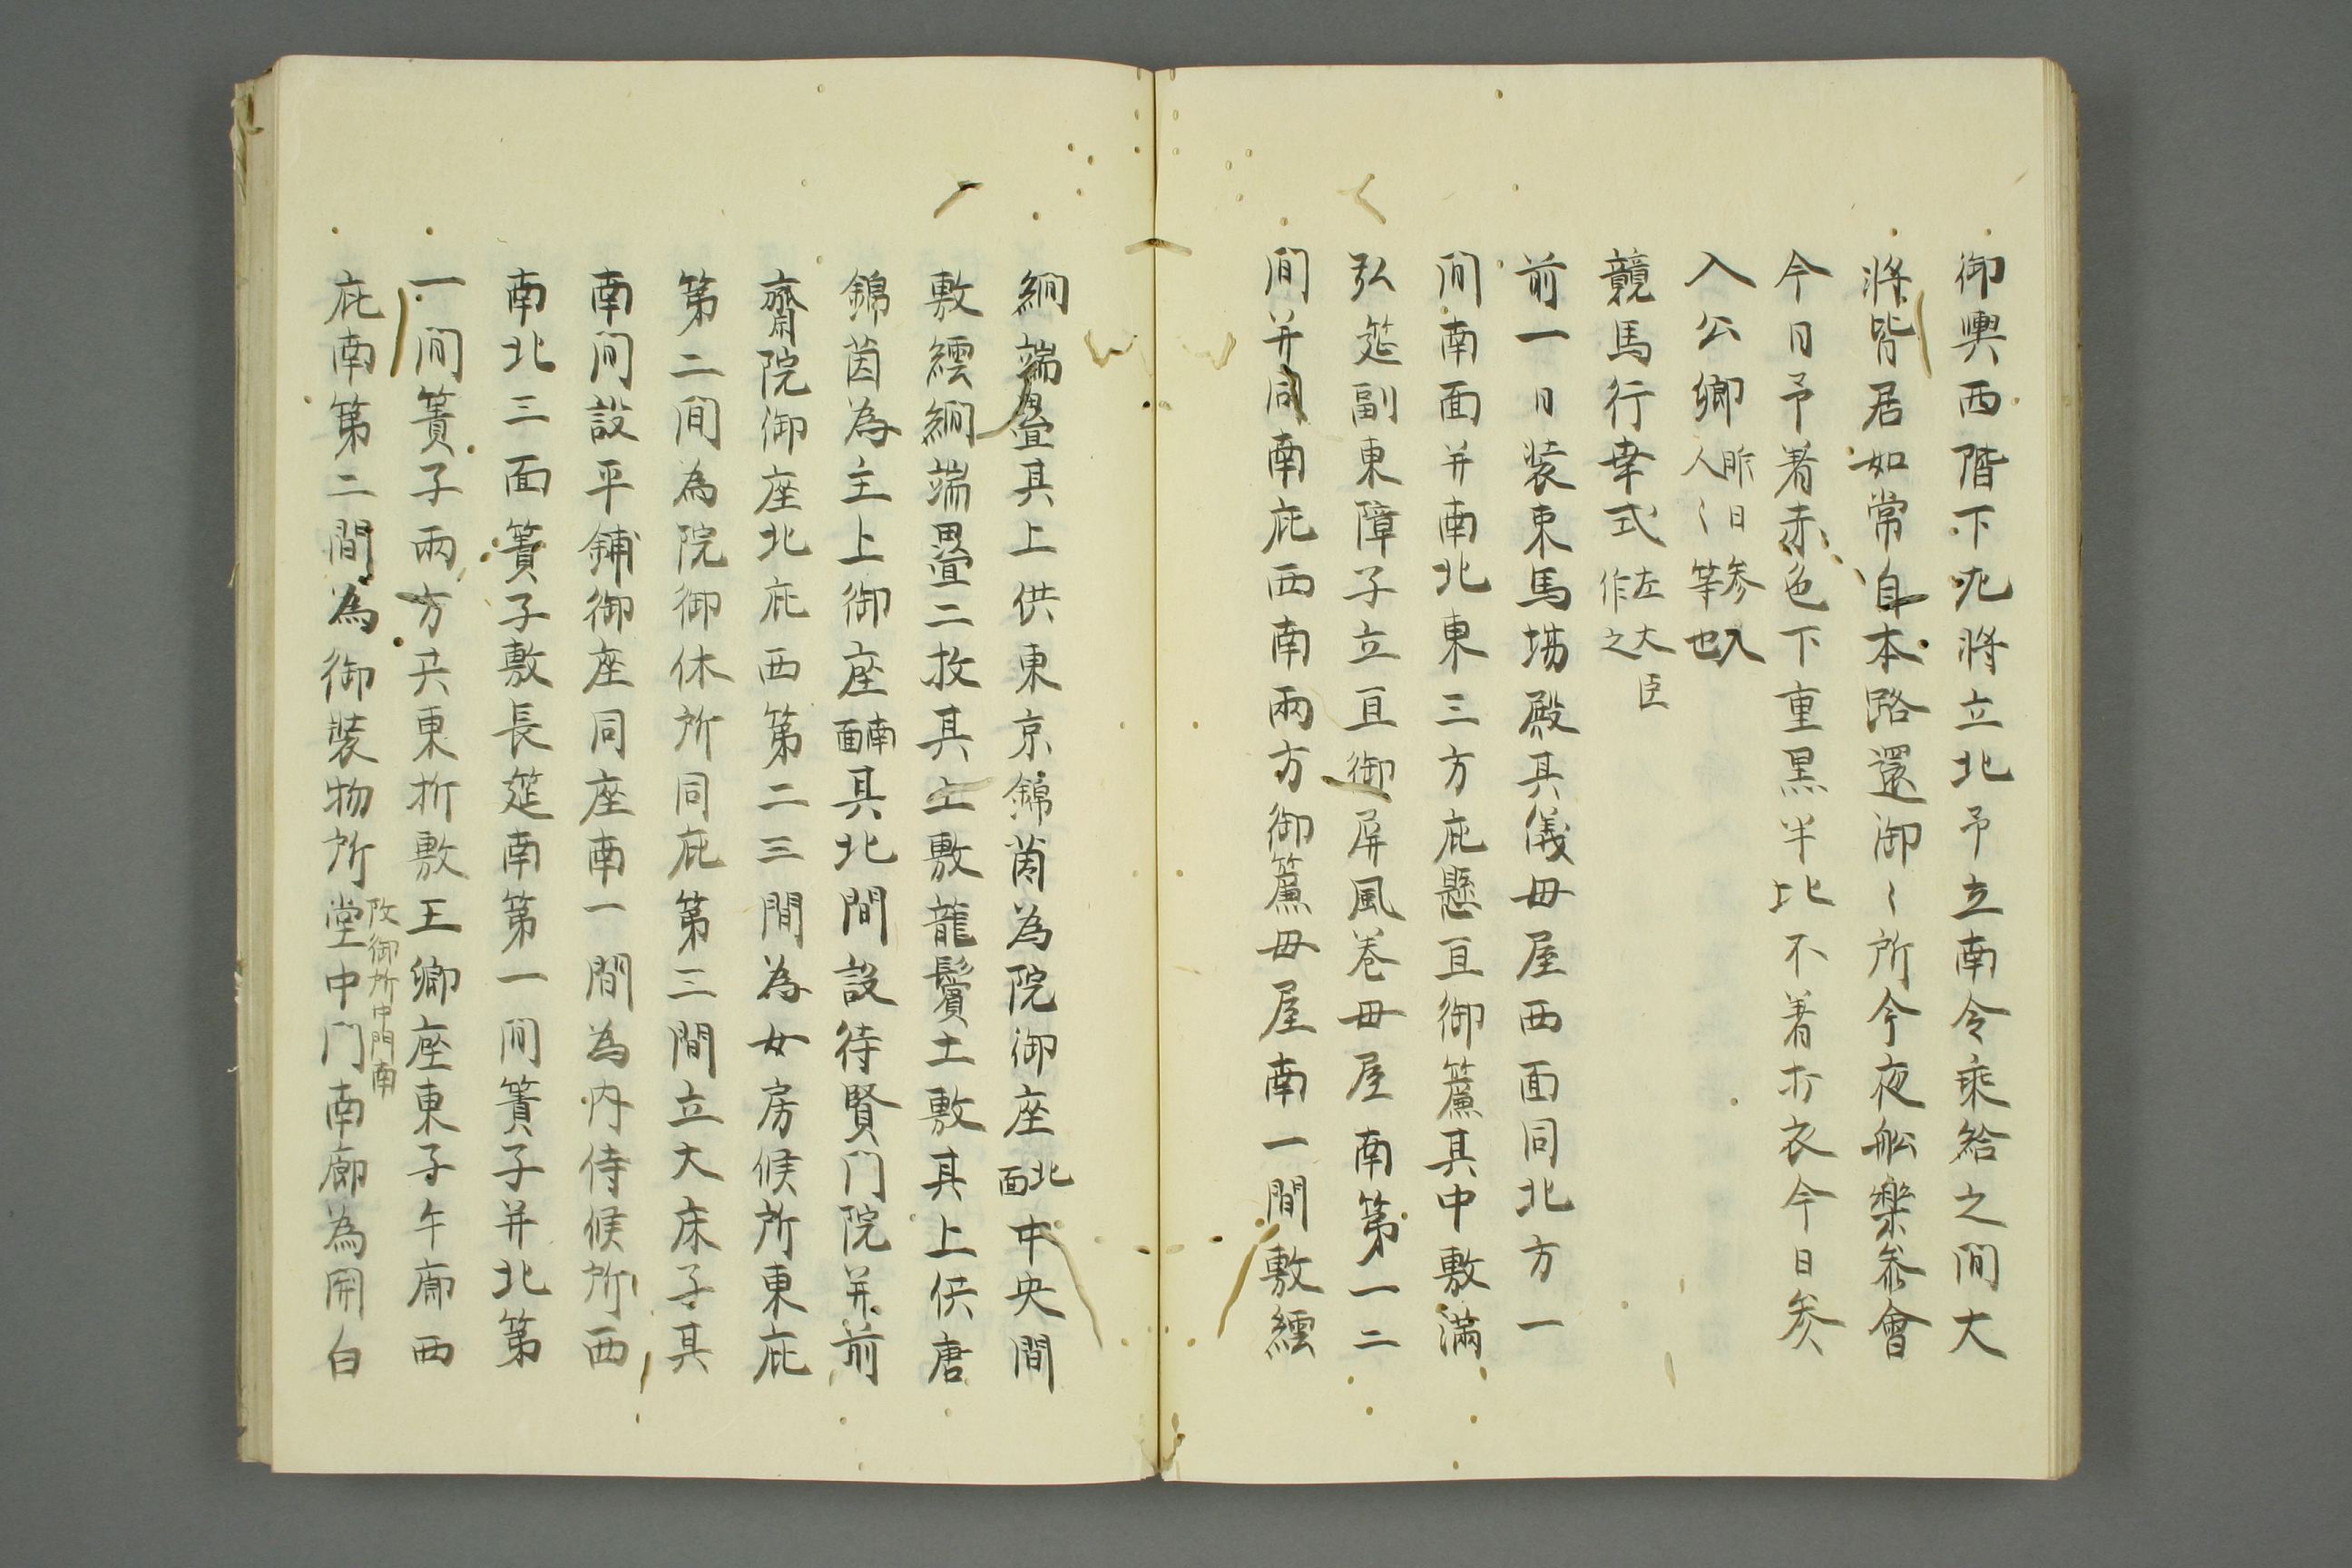 御輿西階下九將立北予立南令乗給之間大
將皆居如常自本路還御〻所今夜舩樂参會
今日予着赤色下重黒半比不着打衣今日参
入公卿昨日参入人〻等也
競馬行幸式左大臣作之
前一日装束馬場殿其儀母屋西面同北方一
間南面并南北東三方庇懸亘御簾其中敷満
弘筵副東障子立亘御屏風巻母屋南第一二
間并同南庇西南兩方御簾母屋南一間敷繧
繝端疊其上供東京錦茵為院御座北面中央間
敷繧繝端疊二枚其上敷龍鬢土敷其上供唐
錦茵為主上御座南面其北間設待賢門院并前
齋院御座北庇西第二三間為女房候所東庇
第二間為院御休所同庇第三間立大床子其
南間設平鋪御座同座南一間為内侍候所西
南北三面簀子敷長筵南第一間簀子并北第
一間簀子兩方共東折敷王卿座東子午廊西
庇南第二間為御装物所堂中門南廊為関白
改御所中門南